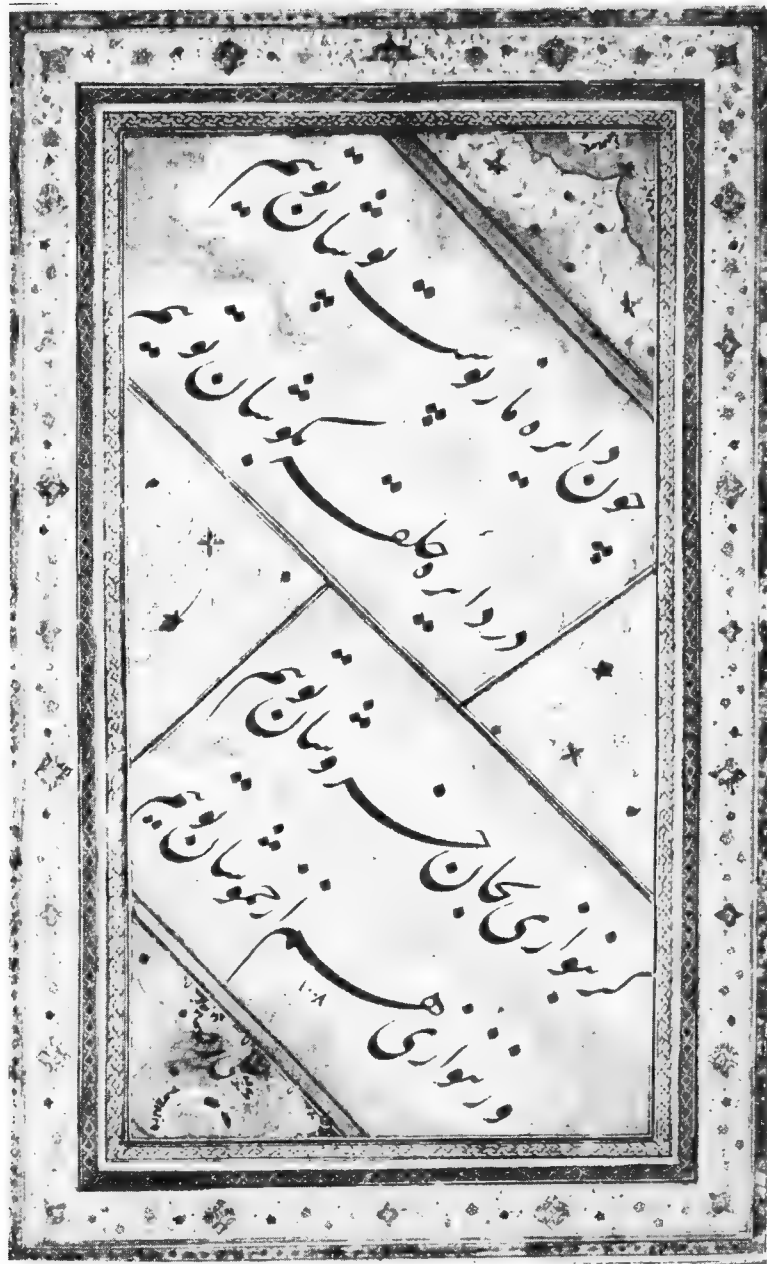 چون دایره ما ز پوست پوشان توییم
در دایره حلقه بگوشان توییم
گر بنوازی بجان خروشان توییم
ور ننوازی هم از خموشان توییم
۱۰۰۸